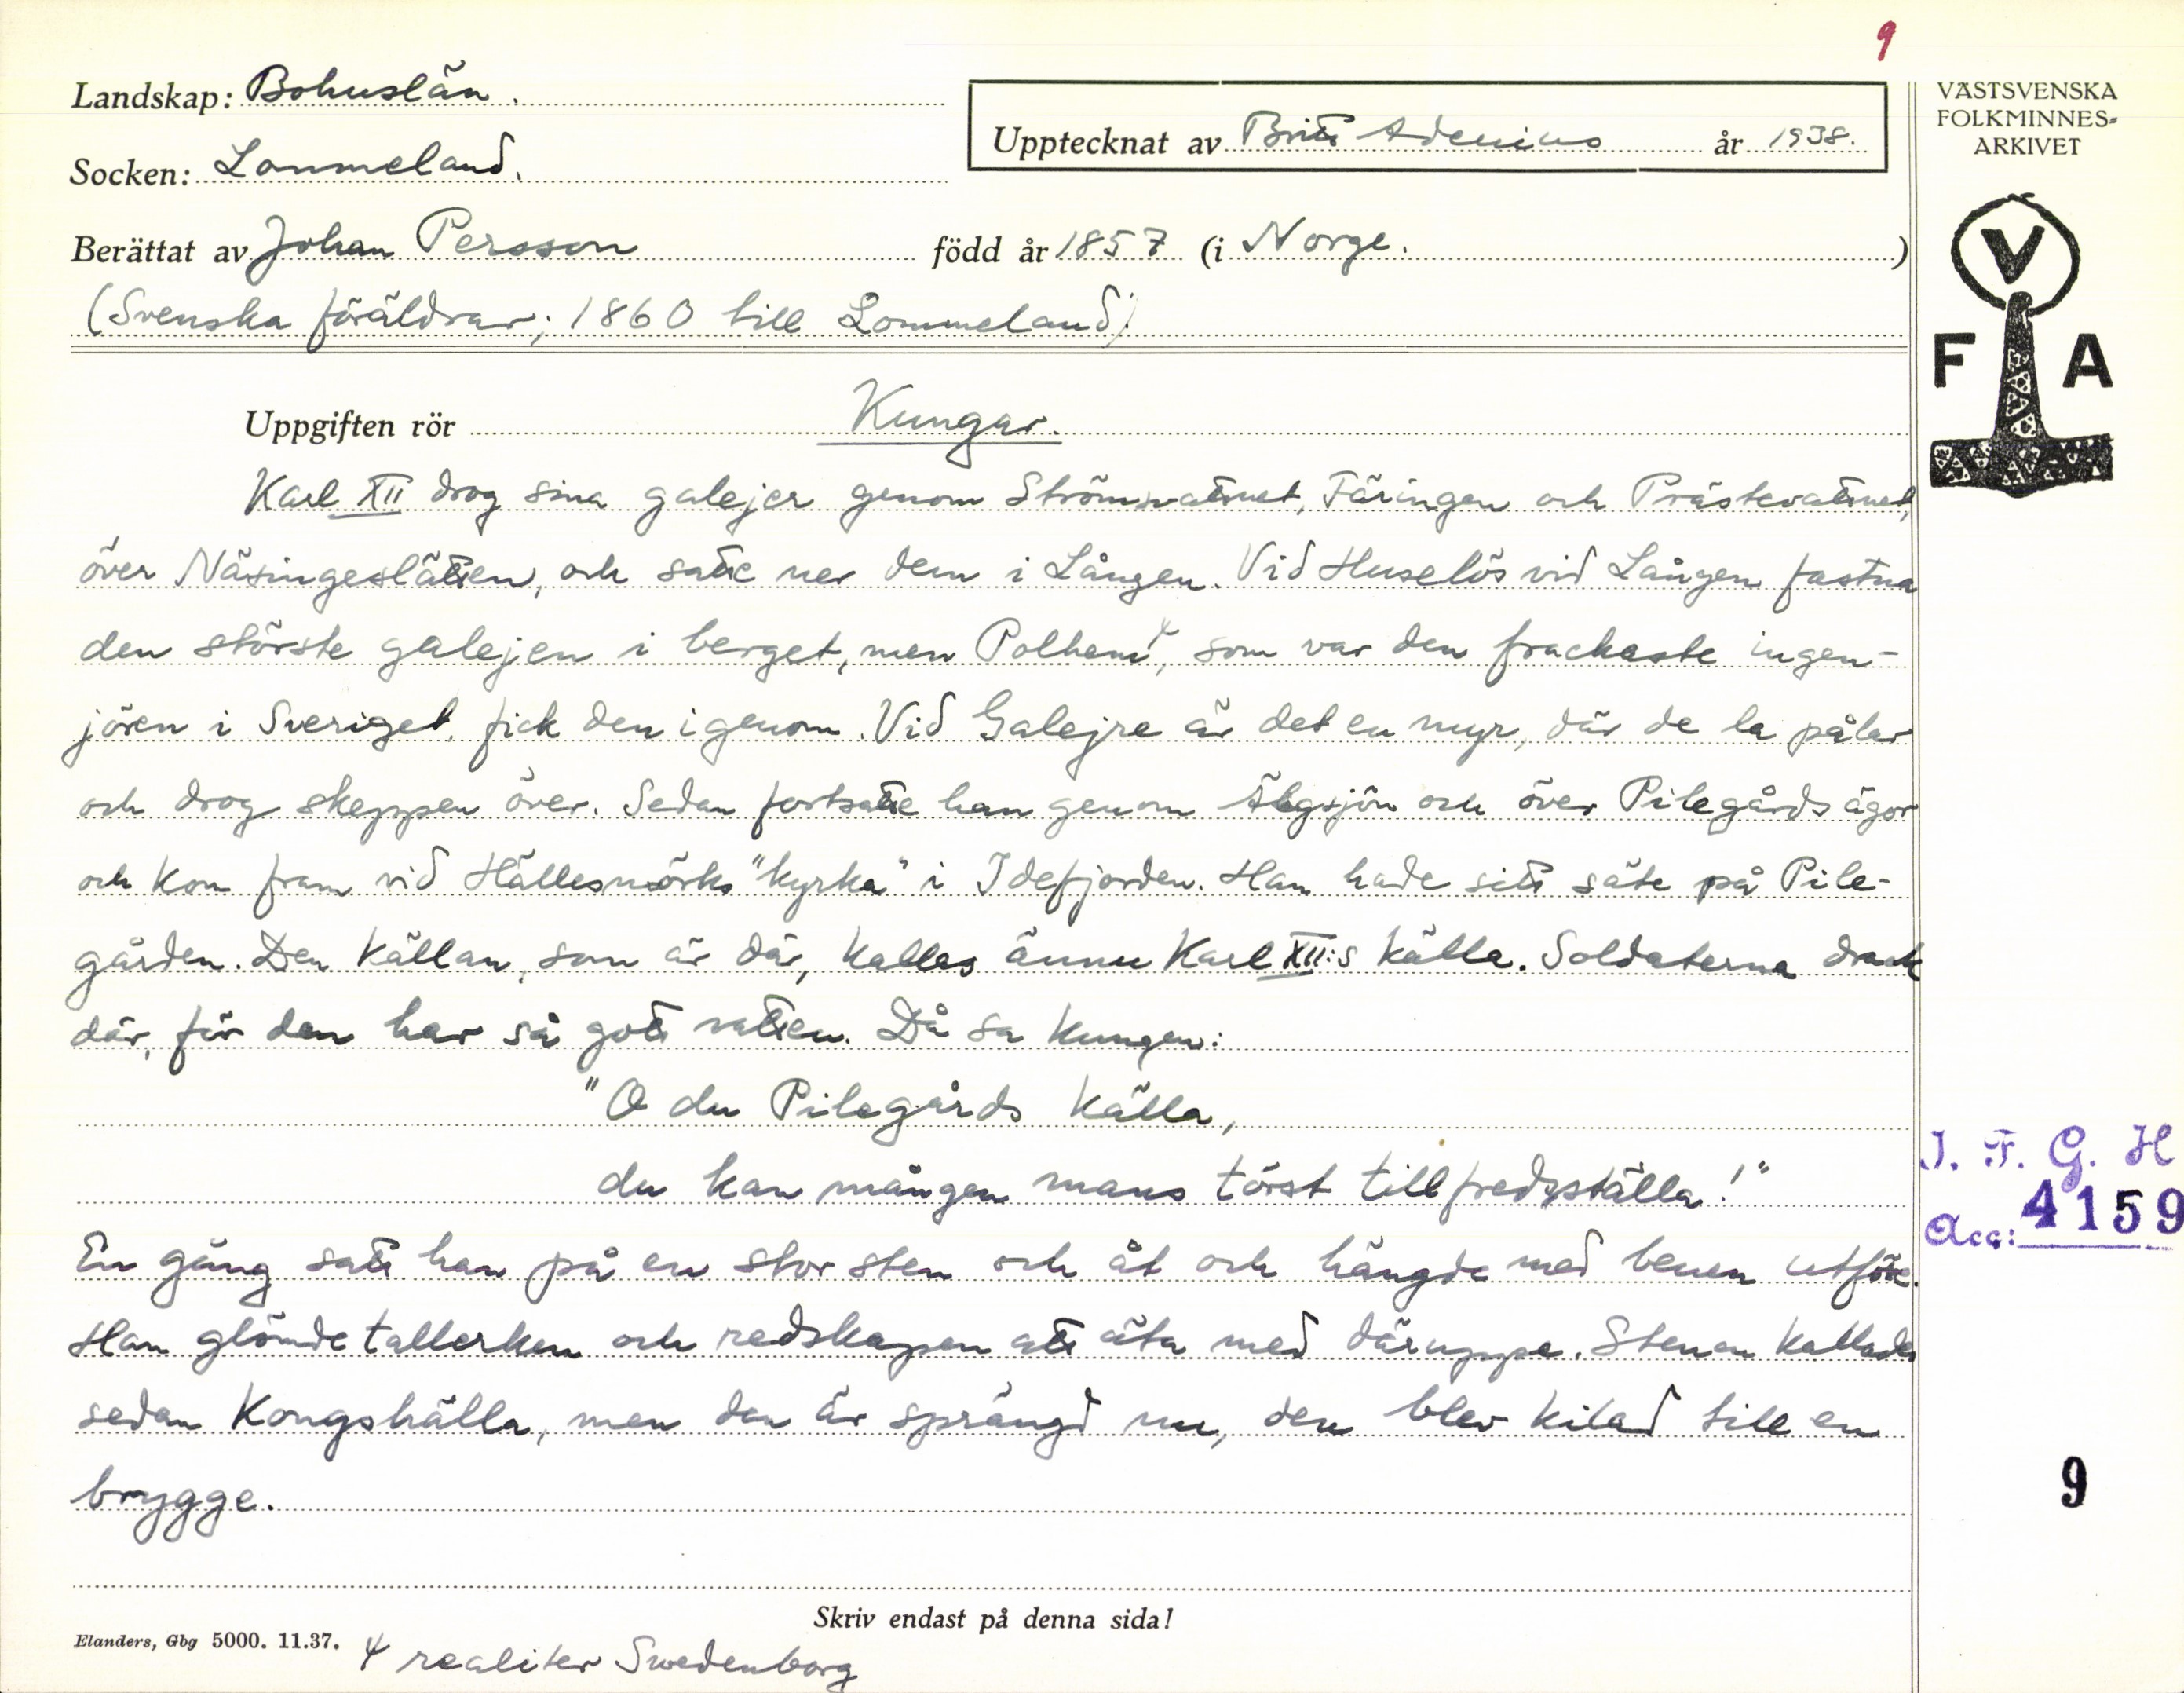 9
Landskap: Bohuslän.
Upptecknat av Britt Adenius år 1938.
Socken: Lommeland.
Berättat av Johan Persson född år 1857 (i Norge.)
(Svenska föräldrar; 1860 till Lommeland)
VÄSTSVENSKA
FOLKMINNES-
ARKIVET
V
F A
Uppgiften rör Kungar.
Karl XII drog sina galejer genom Strömsvattnet, Färingen och Prästevattnet,
över Näsingeslätten, och satte ner dem i Lången. Vid Huselös vid Lången fastna
den störste galejen i berget, men Polhem, som var den frackaste ingen-
jören i Sveriget, fick den igenom. Vid Galejre är det en myr, där de la pålar
och drog skeppen över. Sedan fortsatte han genom Älgsjön och över Pilegårds ägor
och kom fram vid Hällesmörks "kyrka" i Idefjorden. Han hade sitt säte på Pile-
gården. Den källan, som är där, kallas ännu Karl XII:s källa. Soldaterna drack
där, för den har så gott vatten. Då sa kungen:
"O du Pilegårds källa,
du kan mången mans törst tillfredsställa!"
En gång satt han på en stor sten och åt och hängde med benen utföre.
Han glömde tallerken och redskapen att äta med däruppe. Stenen kallades
sedan Kongshälla, men den är sprängd nu, den blev kilad till en
brygge.
I. F. G. H
Acc: 4159
9
Skriv endast på denna sida!
Elanders, Gbg 5000. 11.37.
realiter Swedenborg